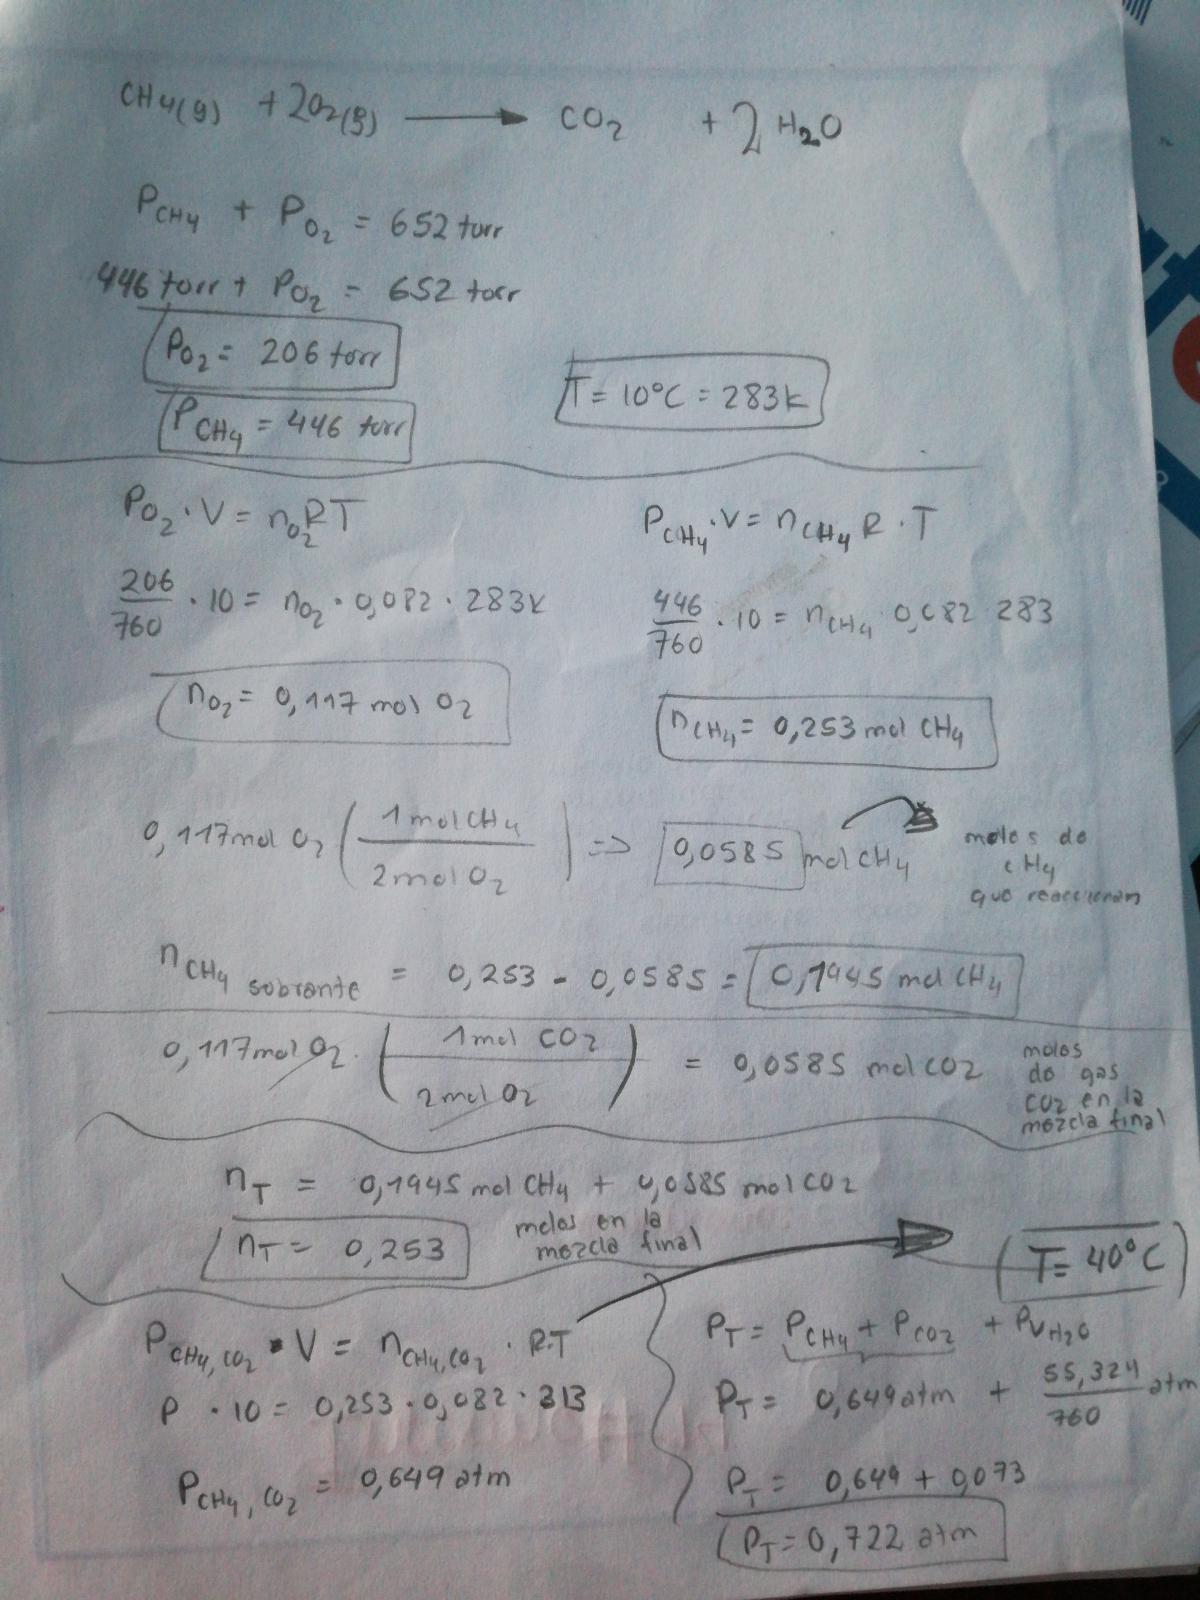 CH4(g) + 2O2(g) → CO2 + 2 H2O
PCH4 + PO2 = 652 torr
446 torr + PO2 = 652 torr
PO2 = 206 torr
T = 10°C = 283k
PCH4 = 446 torr
PO2 · V = nO2RT
PCH4 · V = nCH4 R · T
206/760 · 10 = nO2 · 0,082 · 283k
446/760 · 10 = nCH4 0,082 283
nO2 = 0,117 mol O2
nCH4 = 0,253 mol CH4
0,117 mol O2 (1 mol CH4 / 2 mol O2) => 0,0585 mol CH4
moles de
CH4
que reaccionan
nCH4 sobrante = 0,253 - 0,0585 = 0,1945 mol CH4
0,117 mol O2 · (1 mol CO2 / 2 mol O2) = 0,0585 mol CO2
moles
de gas
CO2 en la
mezcla final
nT = 0,1945 mol CH4 + 0,0585 mol CO2
nT = 0,253
moles en la
mezcla final
T = 40°C
PCH4,CO2 · V = nCH4,CO2 · RT
P · 10 = 0,253 · 0,082 · 313
PCH4,CO2 = 0,649 atm
PT = PCH4 + PCO2 + PVH2O
PT = 0,649 atm + 55,324/760 atm
PT = 0,649 + 0,073
PT = 0,722 atm